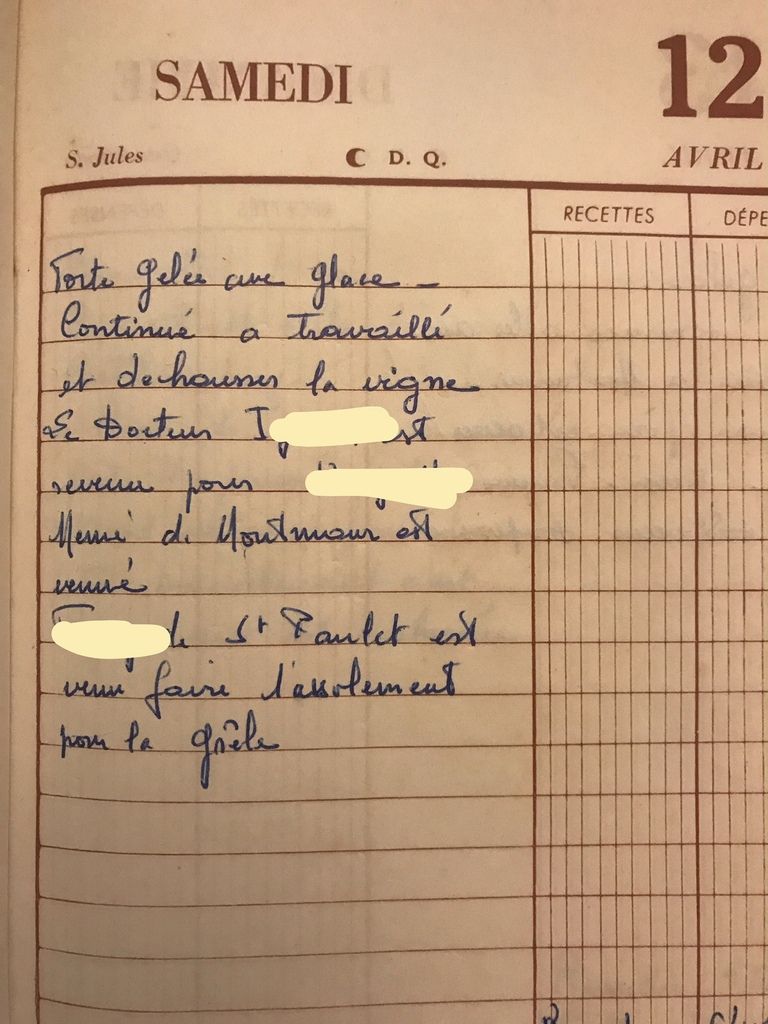 SAMEDI 12
S. Jules D. Q. AVRIL
RECETTES DÉPE
Forte Gelée avec Glace -
Continué a Travaillé
et dechausser la vigne
Le Docteur I est
revenu pour
Memé de Montmaur est
venué
de St Paulet est
venu faire l'assolement
pour la Grêle